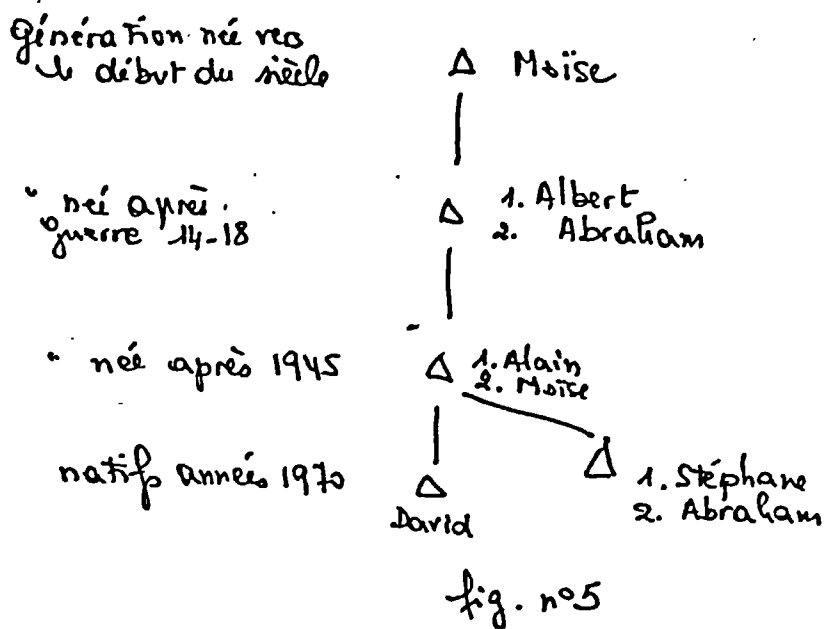 Génération née vers
le début du siècle
Moïse
" née après
guerre 14-18
1. Albert
2. Abraham
" née après 1945
1. Alain
2. Moïse
natifs années 1970
David
1. Stéphane
2. Abraham
fig. n°5